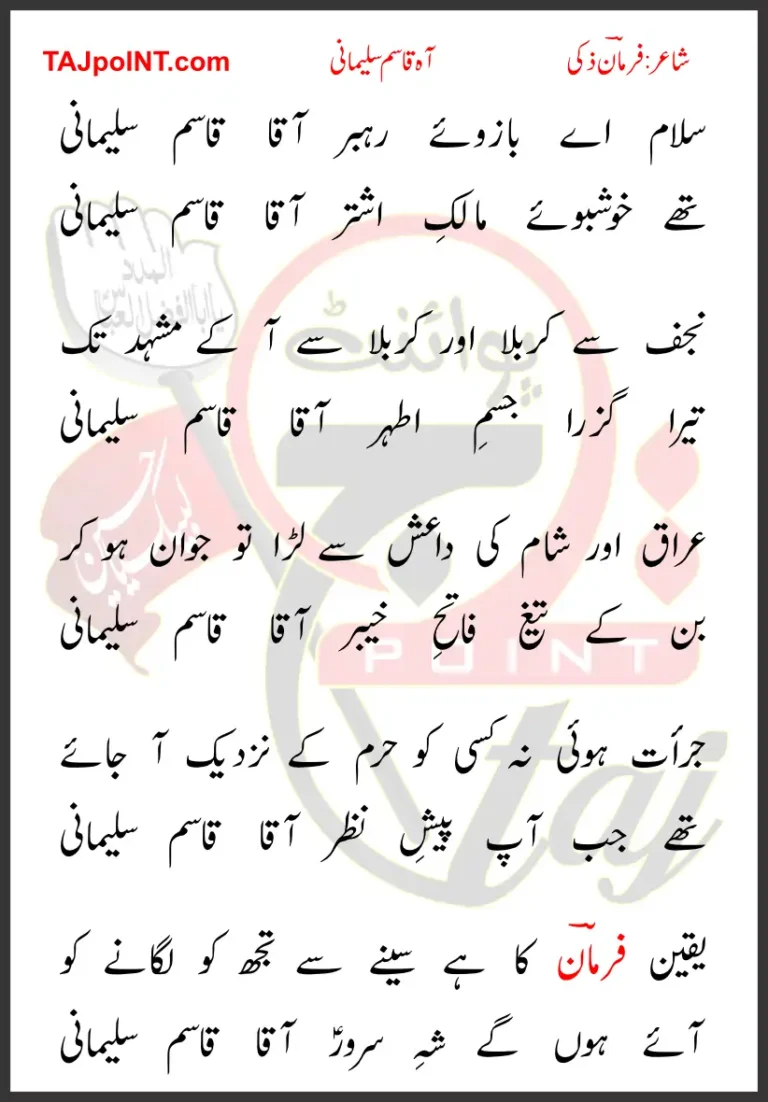 شاعر: فرمانؔ ذکی آہ قاسم سلیمانی TAJpoINT.com
سلام اے بازوئے رہبر آقا قاسم سلیمانی
تھے خوشبوئے مالکِ اشتر آقا قاسم سلیمانی
نجف سے کربلا اور کربلا سے آ کے مشہد تک
تیرا گزرا جسمِ اطہر آقا قاسم سلیمانی
عراق اور شام کی داعش سے لڑا تو جوان ہو کر
بن کے تیغِ فاتحِ خیبر آقا قاسم سلیمانی
جرأت ہوئی نہ کسی کو حرم کے نزدیک آ جائے
تھے جب آپ پیشِ نظر آقا قاسم سلیمانی
یقین فرمانؔ کا ہے سینے سے تجھ کو لگانے کو
آئے ہوں گے شہِ سرورؑ آقا قاسم سلیمانی
المدد
یا ابالفضل العباس
لبیک یا حسین
پوائنٹ
تاج
POINT
taj